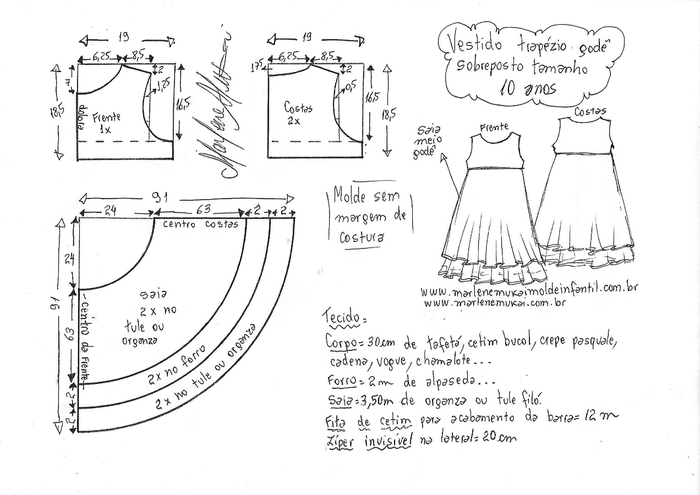 19
6,25
8,5
2
7
18,5
1,25
16,5
dobra
Frente
1x
19
6,25
8,5
2
1,5
0,5
16,5
18,5
Costas
2x
Vestido trapézio godê
sobreposto tamanho
10 anos
Saia
meio
godê
Frente
Costas
91
24
63
2
2
centro costas
24
91
63
2
2
centro da frente
saia
2x no
tule ou
organza
2x no forro
2x no tule ou organza
Molde sem
margem de
costura
www.marlenemukaimoldeinfantil.com.br
www.marlenemukai.com.br
Tecido=
Corpo=30cm de tafetá, cetim bucol, crepe pasquale,
cadena, vogue, chamalote...
Forro=2m de alpaseda...
Saia=3,50m de organza ou tule filó.
Fita de cetim para acabamento da barra=12m
Zíper invisível na lateral=20cm